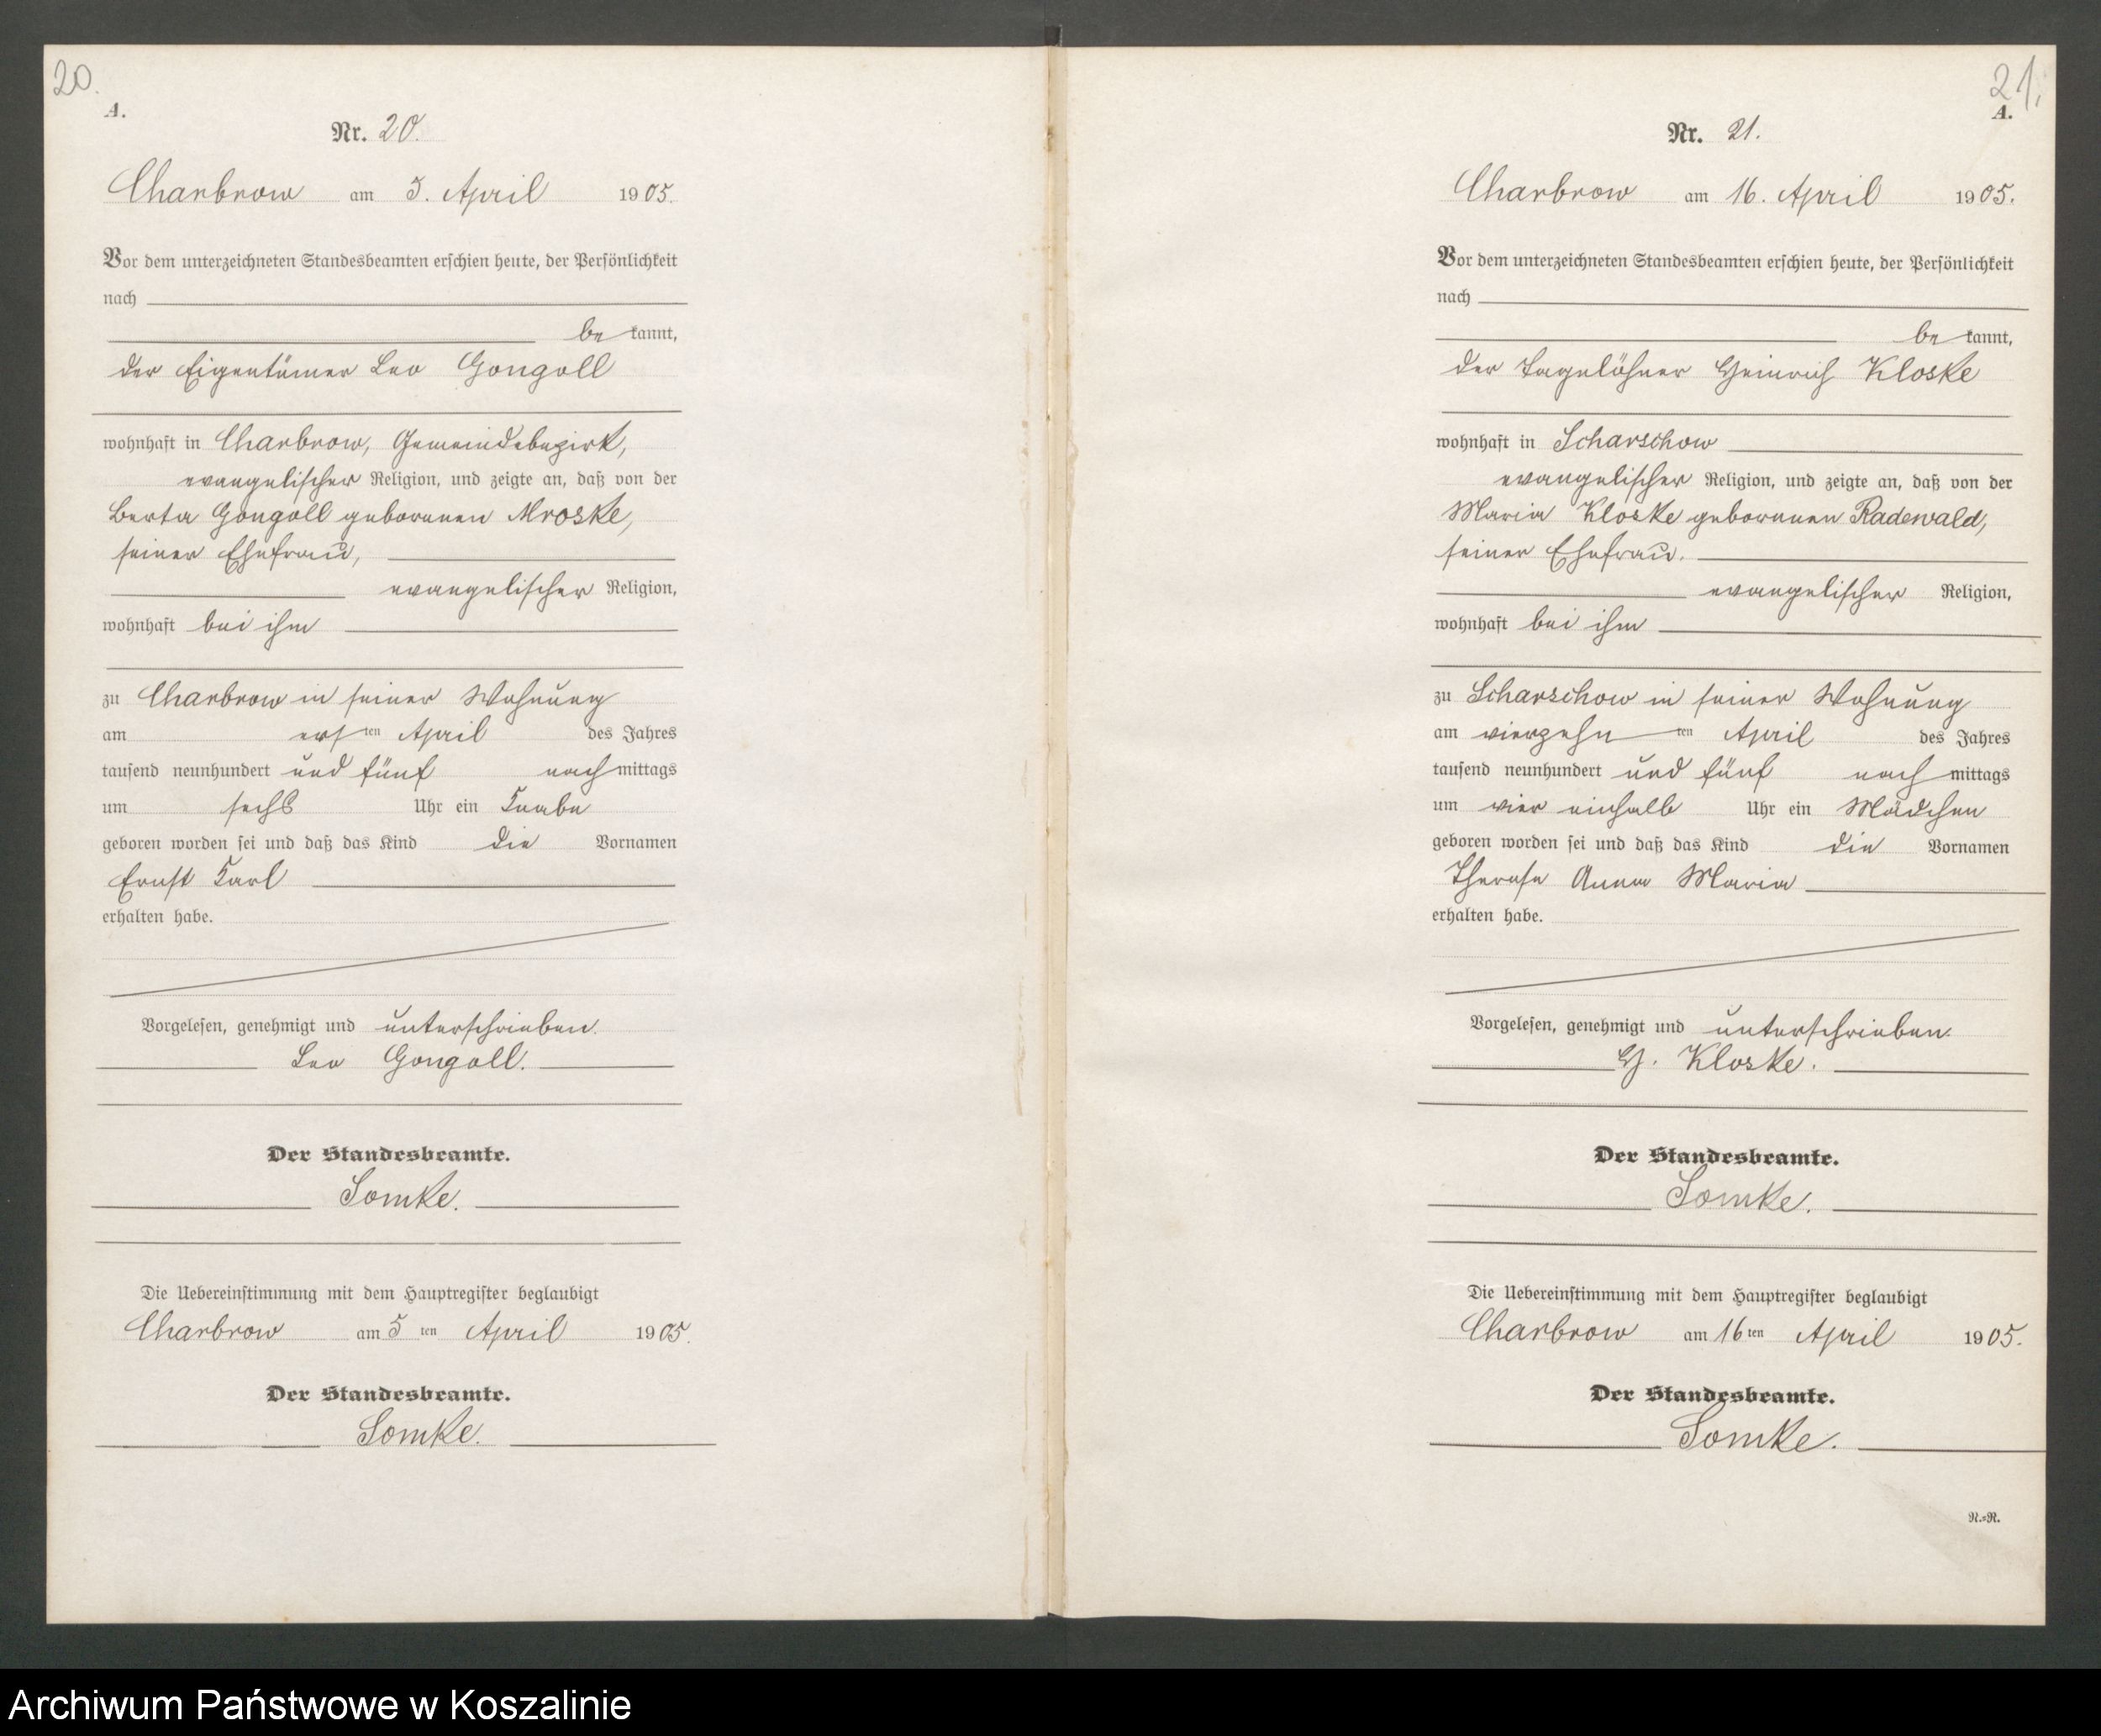 20.
A.
Nr. 20.
Charbrow am 5. April 1905.
Vor dem unterzeichneten Standesbeamten erschien heute, der Persönlichkeit
nach
be kannt,
der Eigentümer Leo Gongoll
wohnhaft in Charbrow, Gemeindebezirk,
evangelischer Religion, und zeigte an, daß von der
Berta Gongoll geborenen Mroske,
seiner Ehefrau,
evangelischer Religion,
wohnhaft bei ihm
zu Charbrow in seiner Wohnung
am ersten April des Jahres
tausend neunhundert und fünf nachmittags
um sechs Uhr ein Knabe
geboren worden sei und daß das Kind die Vornamen
Ernst Karl
erhalten habe.
Vorgelesen, genehmigt und unterschrieben.
Leo Gongoll.
Der Standesbeamte.
Somke.
Die Uebereinstimmung mit dem Hauptregister beglaubigt
Charbrow am 5 ten April 1905.
Der Standesbeamte.
Somke.
21.
A.
Nr. 21.
Charbrow am 16. April 1905.
Vor dem unterzeichneten Standesbeamten erschien heute, der Persönlichkeit
nach
be kannt,
der Tagelöhner Heinrich Kloske
wohnhaft in Scharschow
evangelischer Religion, und zeigte an, daß von der
Maria Kloske geborenen Radewald,
seiner Ehefrau.
evangelischer Religion,
wohnhaft bei ihm
zu Scharschow in seiner Wohnung
am vierzehn ten April des Jahres
tausend neunhundert und fünf nachmittags
um vier einhalb Uhr ein Mädchen
geboren worden sei und daß das Kind die Vornamen
Therese Anna Maria
erhalten habe.
Vorgelesen, genehmigt und unterschrieben.
H. Kloske.
Der Standesbeamte.
Somke.
Die Uebereinstimmung mit dem Hauptregister beglaubigt
Charbrow am 16ten April 1905.
Der Standesbeamte.
Somke.
N.=R.
Archiwum Państwowe w Koszalinie